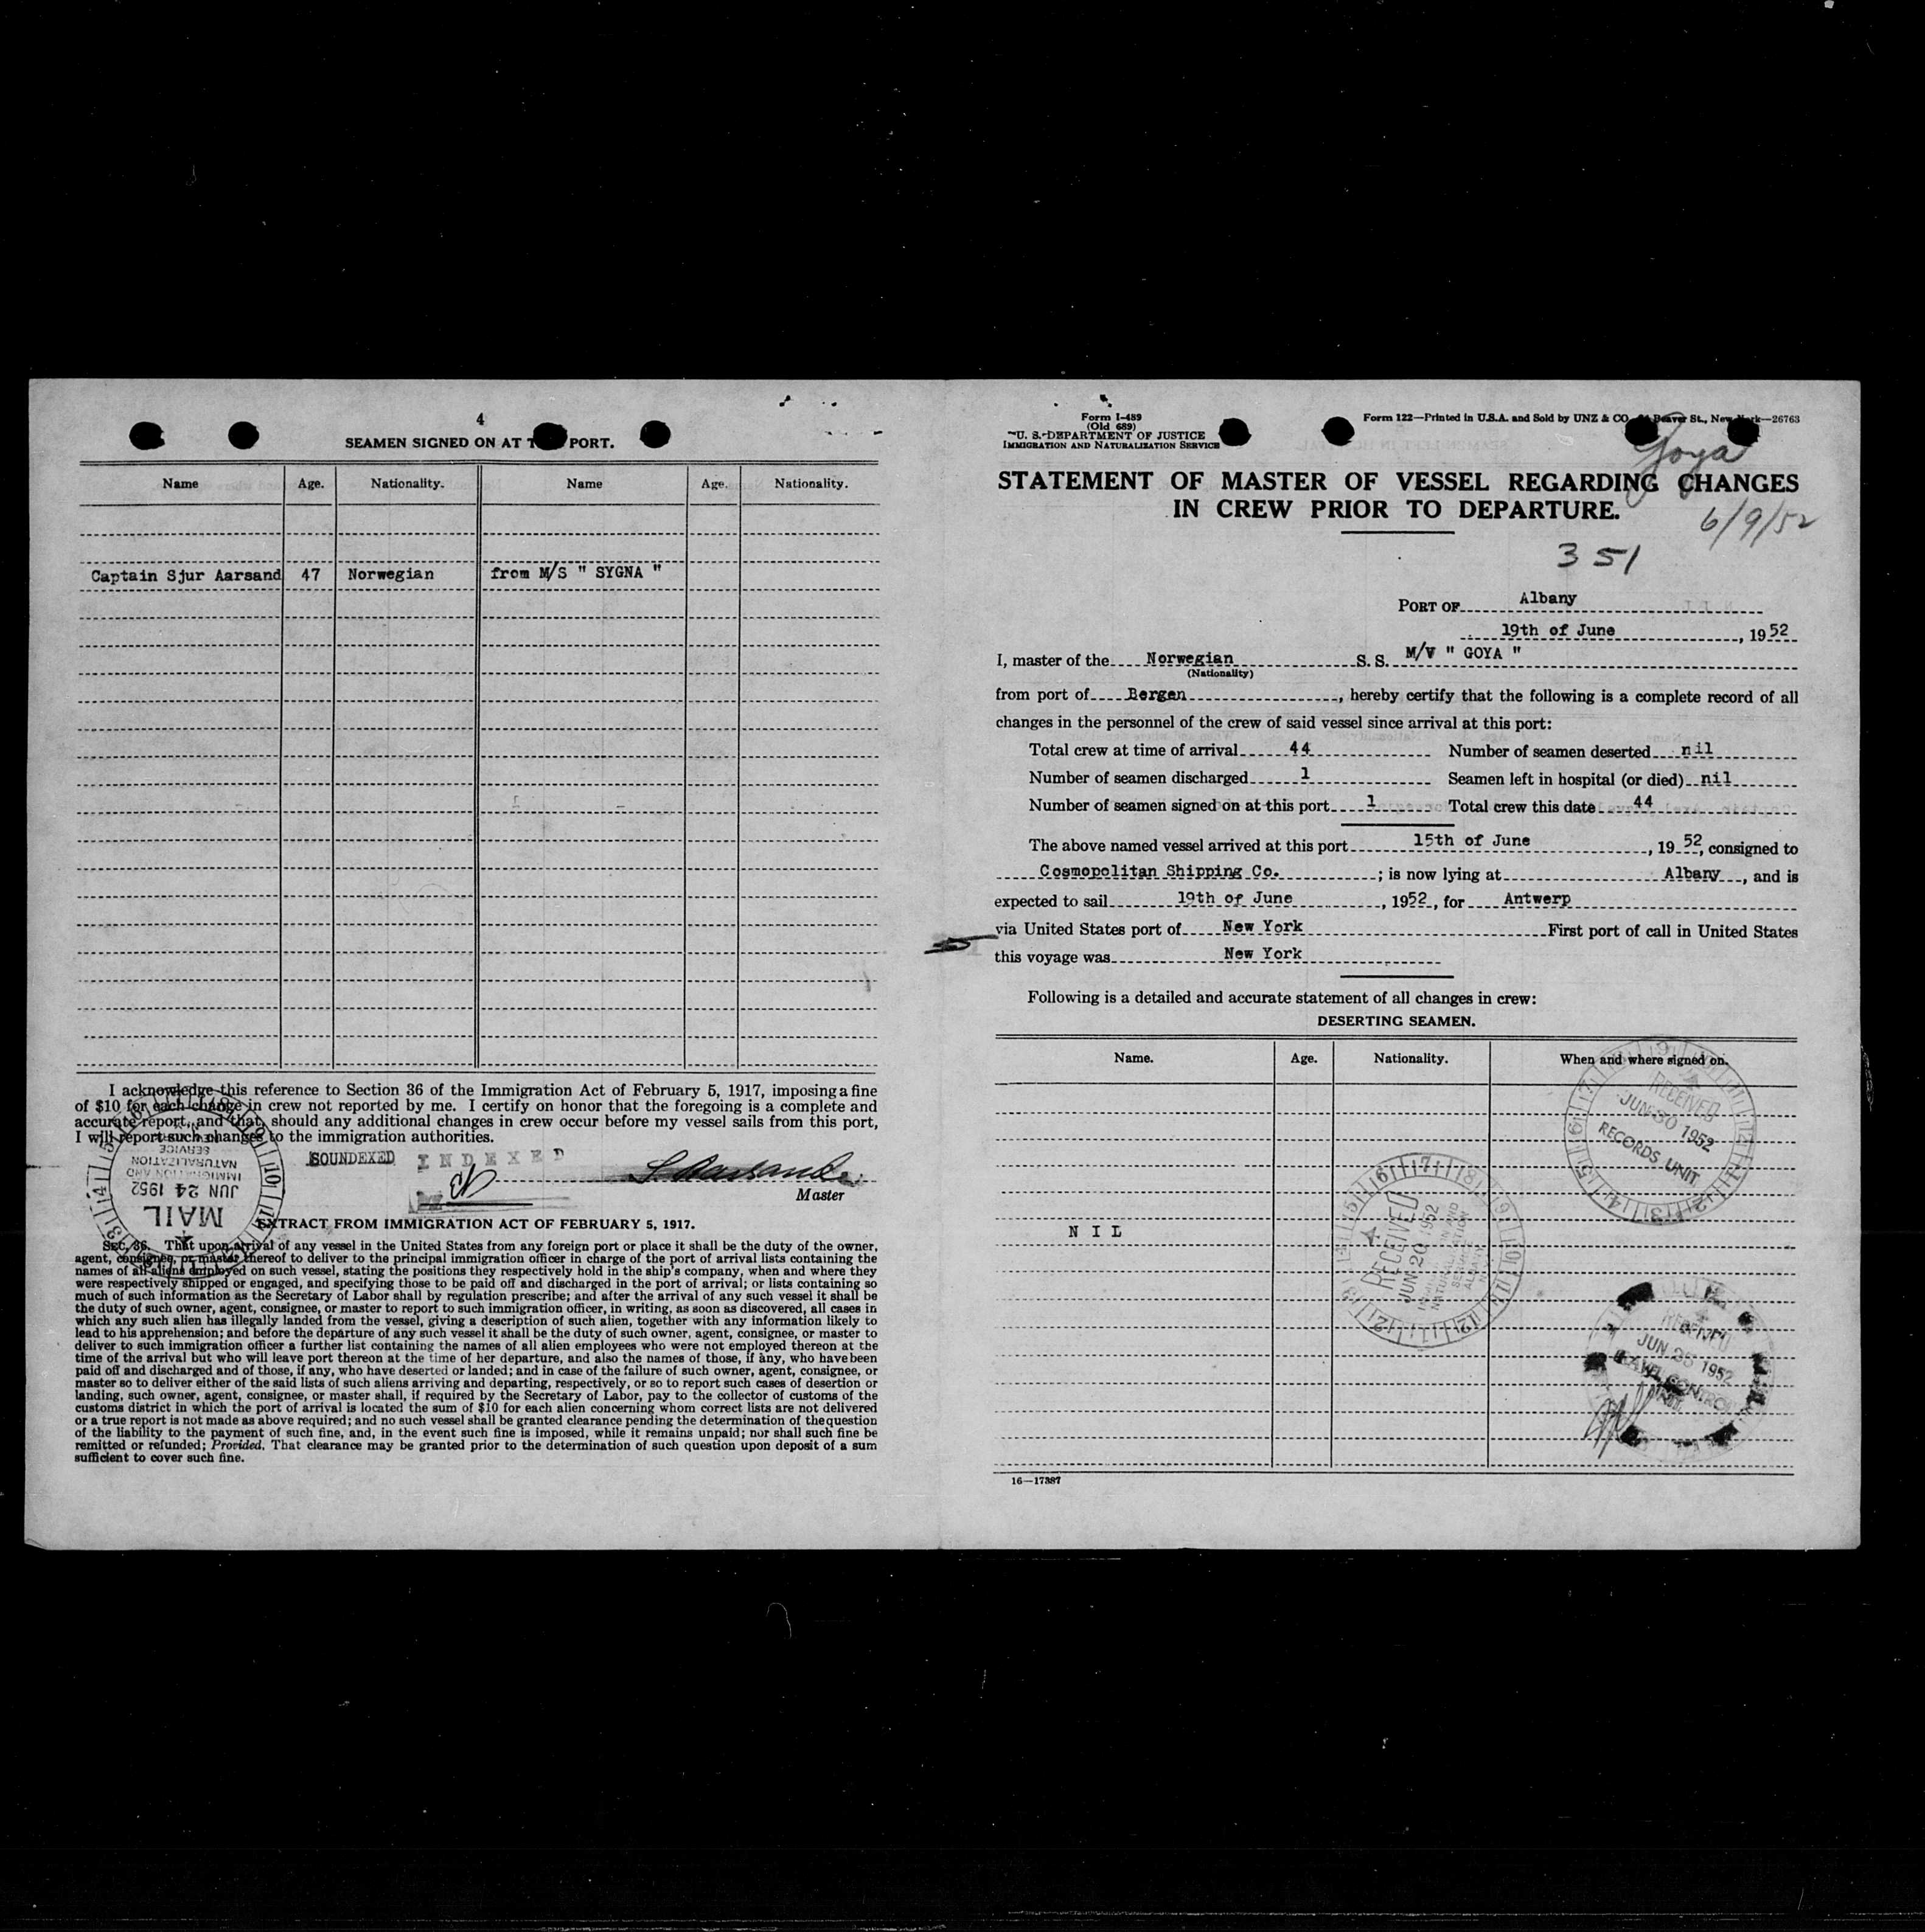 4
SEAMEN SIGNED ON AT T PORT.
Name Age. Nationality. Name Age. Nationality.
Captain Sjur Aarsand 47 Norwegian from M/S " SYGNA "
I acknowledge this reference to Section 36 of the Immigration Act of February 5, 1917, imposing a fine
of $10 for each change in crew not reported by me. I certify on honor that the foregoing is a complete and
accurate report, and that, should any additional changes in crew occur before my vessel sails from this port,
I will report such changes to the immigration authorities.
SOUNDEXED INDEXED
Master
MAIL
JUN 24 1952
IMMIGRATION AND
NATURALIZATION
SERVICE
EXTRACT FROM IMMIGRATION ACT OF FEBRUARY 5, 1917.
SEC. 36. That upon arrival of any vessel in the United States from any foreign port or place it shall be the duty of the owner,
agent, consignee, or master thereof to deliver to the principal immigration officer in charge of the port of arrival lists containing the
names of all aliens employed on such vessel, stating the positions they respectively hold in the ship's company, when and where they
were respectively shipped or engaged, and specifying those to be paid off and discharged in the port of arrival; or lists containing so
much of such information as the Secretary of Labor shall by regulation prescribe; and after the arrival of any such vessel it shall be
the duty of such owner, agent, consignee, or master to report to such immigration officer, in writing, as soon as discovered, all cases in
which any such alien has illegally landed from the vessel, giving a description of such alien, together with any information likely to
lead to his apprehension; and before the departure of any such vessel it shall be the duty of such owner, agent, consignee, or master to
deliver to such immigration officer a further list containing the names of all alien employees who were not employed thereon at the
time of the arrival but who will leave port thereon at the time of her departure, and also the names of those, if any, who have been
paid off and discharged and of those, if any, who have deserted or landed; and in case of the failure of such owner, agent, consignee, or
master so to deliver either of the said lists of such aliens arriving and departing, respectively, or so to report such cases of desertion or
landing, such owner, agent, consignee, or master shall, if required by the Secretary of Labor, pay to the collector of customs of the
customs district in which the port of arrival is located the sum of $10 for each alien concerning whom correct lists are not delivered
or a true report is not made as above required; and no such vessel shall be granted clearance pending the determination of the question
of the liability to the payment of such fine, and, in the event such fine is imposed, while it remains unpaid; nor shall such fine be
remitted or refunded; Provided, That clearance may be granted prior to the determination of such question upon deposit of a sum
sufficient to cover such fine.
Form I-489
(Old 689)
U. S. DEPARTMENT OF JUSTICE
IMMIGRATION AND NATURALIZATION SERVICE
Form 122—Printed in U.S.A. and Sold by UNZ & CO. Beaver St., New York—26763
Goya
STATEMENT OF MASTER OF VESSEL REGARDING CHANGES
IN CREW PRIOR TO DEPARTURE.
6/9/52
351
PORT OF Albany
19th of June, 1952
I, master of the Norwegian S. S. M/V " GOYA "
(Nationality)
from port of Bergen, hereby certify that the following is a complete record of all
changes in the personnel of the crew of said vessel since arrival at this port:
Total crew at time of arrival 44 Number of seamen deserted nil
Number of seamen discharged 1 Seamen left in hospital (or died) nil
Number of seamen signed on at this port 1 Total crew this date 44
The above named vessel arrived at this port 15th of June, 1952, consigned to
Cosmopolitan Shipping Co.; is now lying at Albany, and is
expected to sail 19th of June, 1952, for Antwerp
via United States port of New York First port of call in United States
this voyage was New York
Following is a detailed and accurate statement of all changes in crew:
DESERTING SEAMEN.
Name. Age. Nationality. When and where signed on.
RECEIVED
JUN 30 1952
RECORDS UNIT
N I L
RECEIVED
JUN 20 1952
RECEIVED
JUN 25 1952
16—17387